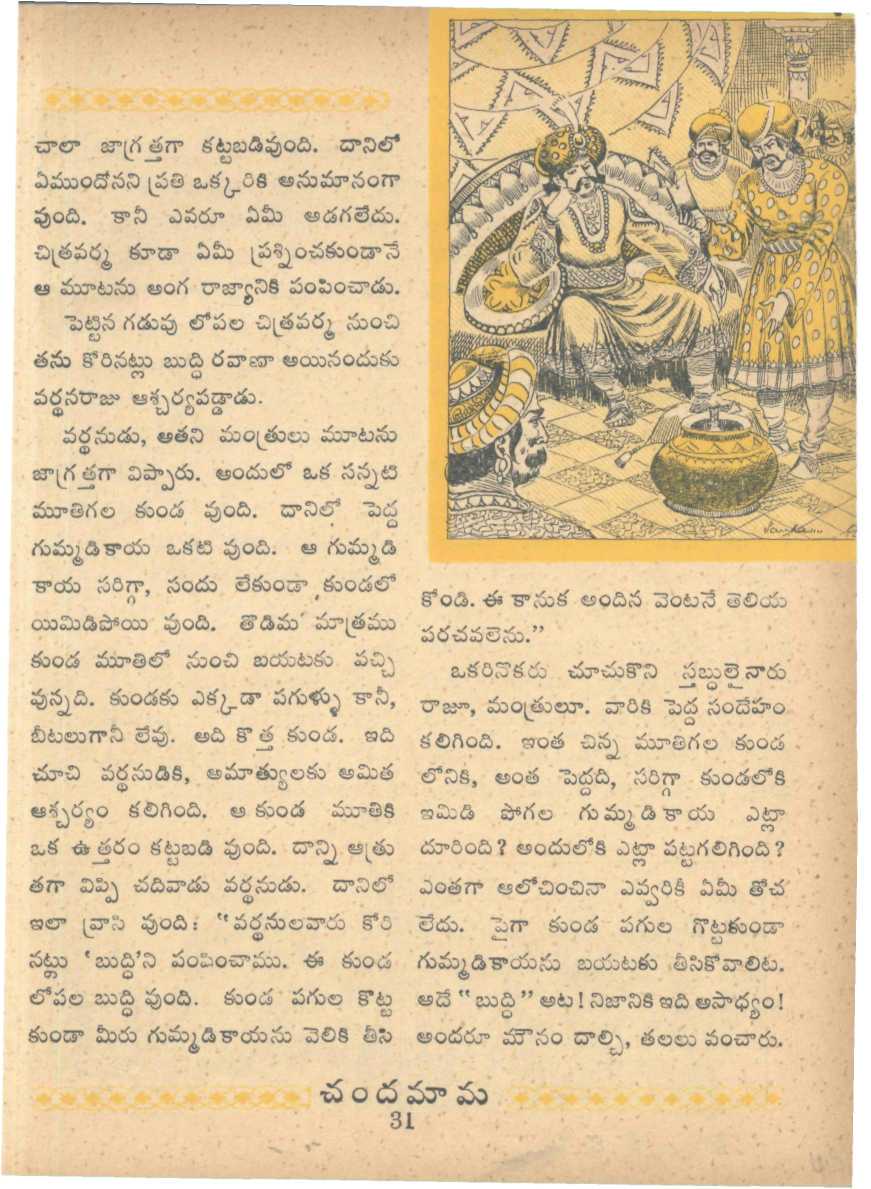 చాలా జాగ్రత్తగా కట్టబడివుంది. దానిలో
ఏముందోనని ప్రతి ఒక్కరికి అనుమానంగా
వుంది. కానీ ఎవరూ ఏమీ అడగలేదు.
చిత్రవర్మ కూడా ఏమీ ప్రశ్నించకుండానే
ఆ మూటను అంగ రాజ్యానికి పంపించాడు.
పెట్టిన గడువు లోపల చిత్రవర్మ నుంచి
తను కోరినట్లు బుద్ధి రవాణా అయినందుకు
వర్థనరాజు ఆశ్చర్యపడ్డాడు.
వర్థనుడు, అతని మంత్రులు మూటను
జాగ్రత్తగా విప్పారు. అందులో ఒక సన్నటి
మూతిగల కుండ వుంది. దానిలో పెద్ద
గుమ్మడికాయ ఒకటి వుంది. ఆ గుమ్మడి
కాయ సరిగ్గా, సందు లేకుండా కుండలో
యిమిడిపోయి వుంది. తొడిమ మాత్రము
కుండ మూతిలో నుంచి బయటకు వచ్చి
వున్నది. కుండకు ఎక్కడా పగుళ్ళు కానీ,
బీటలుగానీ లేవు. అది కొత్త కుండ. ఇది
చూచి వర్థనుడికి, అమాత్యులకు అమిత
ఆశ్చర్యం కలిగింది. ఆ కుండ మూతికి
ఒక ఉత్తరం కట్టబడి వుంది. దాన్ని ఆత్రు
తగా విప్పి చదివాడు వర్థనుడు. దానిలో
ఇలా వ్రాసి వుంది: "వర్థనులవారు కోరి
నట్లు 'బుద్ధి'ని పంపించాము. ఈ కుండ
లోపల బుద్ధి వుంది. కుండ పగుల కొట్ట
కుండా మీరు గుమ్మడికాయను వెలికి తీసి
కోండి. ఈ కానుక అందిన వెంటనే తెలియ
పరచవలెను."
ఒకరినొకరు చూచుకొని స్తబ్ధులైనారు
రాజూ, మంత్రులూ. వారికి పెద్ద సందేహం
కలిగింది. ఇంత చిన్న మూతిగల కుండ
లోనికి, అంత పెద్దది, సరిగ్గా కుండలోకి
ఇమిడి పోగల గుమ్మడికాయ ఎట్లా
దూరింది? అందులోకి ఎట్లా పట్టగలిగింది?
ఎంతగా ఆలోచించినా ఎవ్వరికీ ఏమీ తోచ
లేదు. పైగా కుండ పగుల గొట్టకుండా
గుమ్మడికాయను బయటకు తీసికోవాలిట.
అదే "బుద్ధి" అట! నిజానికి ఇది అసాధ్యం!
అందరూ మౌనం దాల్చి, తలలు వంచారు.
చందమామ
31